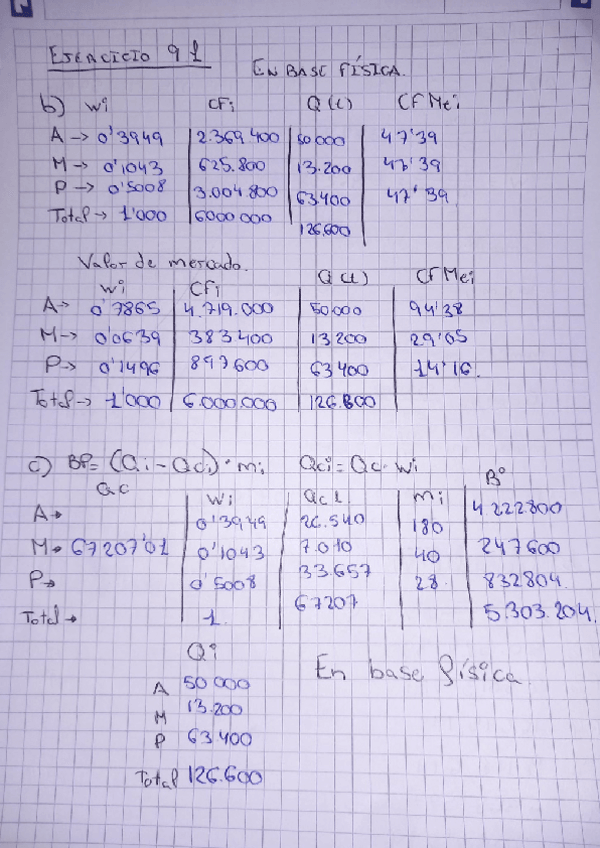 EJERCICIO 9 1
EN BASE FÍSICA.
b) Wi CFi Q(l) CFMei
A → 0'3949 2.369.400 50000 47'39
M → 0'1043 625.800 13.200 47'39
P → 0'5008 3.004.800 63.400 47'39
Total → 1'000 6000000 126.600
Valor de mercado.
Wi CFi Q(l) CFMei
A → 0'7865 4.719.000 50000 94'38
M → 0'0639 383400 13200 29'05
P → 0'1496 897600 63400 14'16.
Total → 1'000 6.000.000 126.600
c) BP = (Qi - Qci) · mi Qci = Qc · Wi
Qc Wi Qc l. mi Bº
A → 0'3949 26.540 180 4222800
M → 67207'01 0'1043 7.010 40 247600
P → 0'5008 33.657 28 832804
Total → 1. 67207 5.303.204.
Qi
A 50000
M 13.200
P 63400
Total 126.600
En base física.